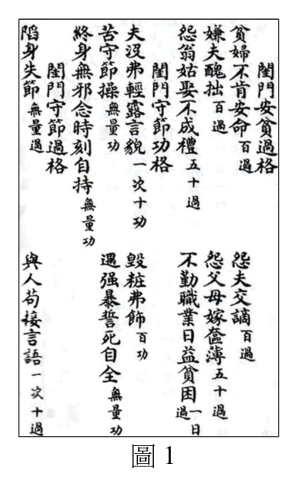 閨門安貧過格
貧婦不肯安命 百過 怨夫交謫 百過
嫌夫醜拙 百過 怨父母嫁奩薄 五十過
怨翁姑娶不成禮 五十過 不勤職業日益貧困 一日過
閨門守節功格
夫沒弗輕露言貌 一次十功 毀粧弗飾 百功
苦守節操 無量功 遇强暴誓死自全 無量功
終身無邪念時刻自持 無量功
閨門守節過格
陷身失節 無量過 與人苟接言語 一次十過
圖 1